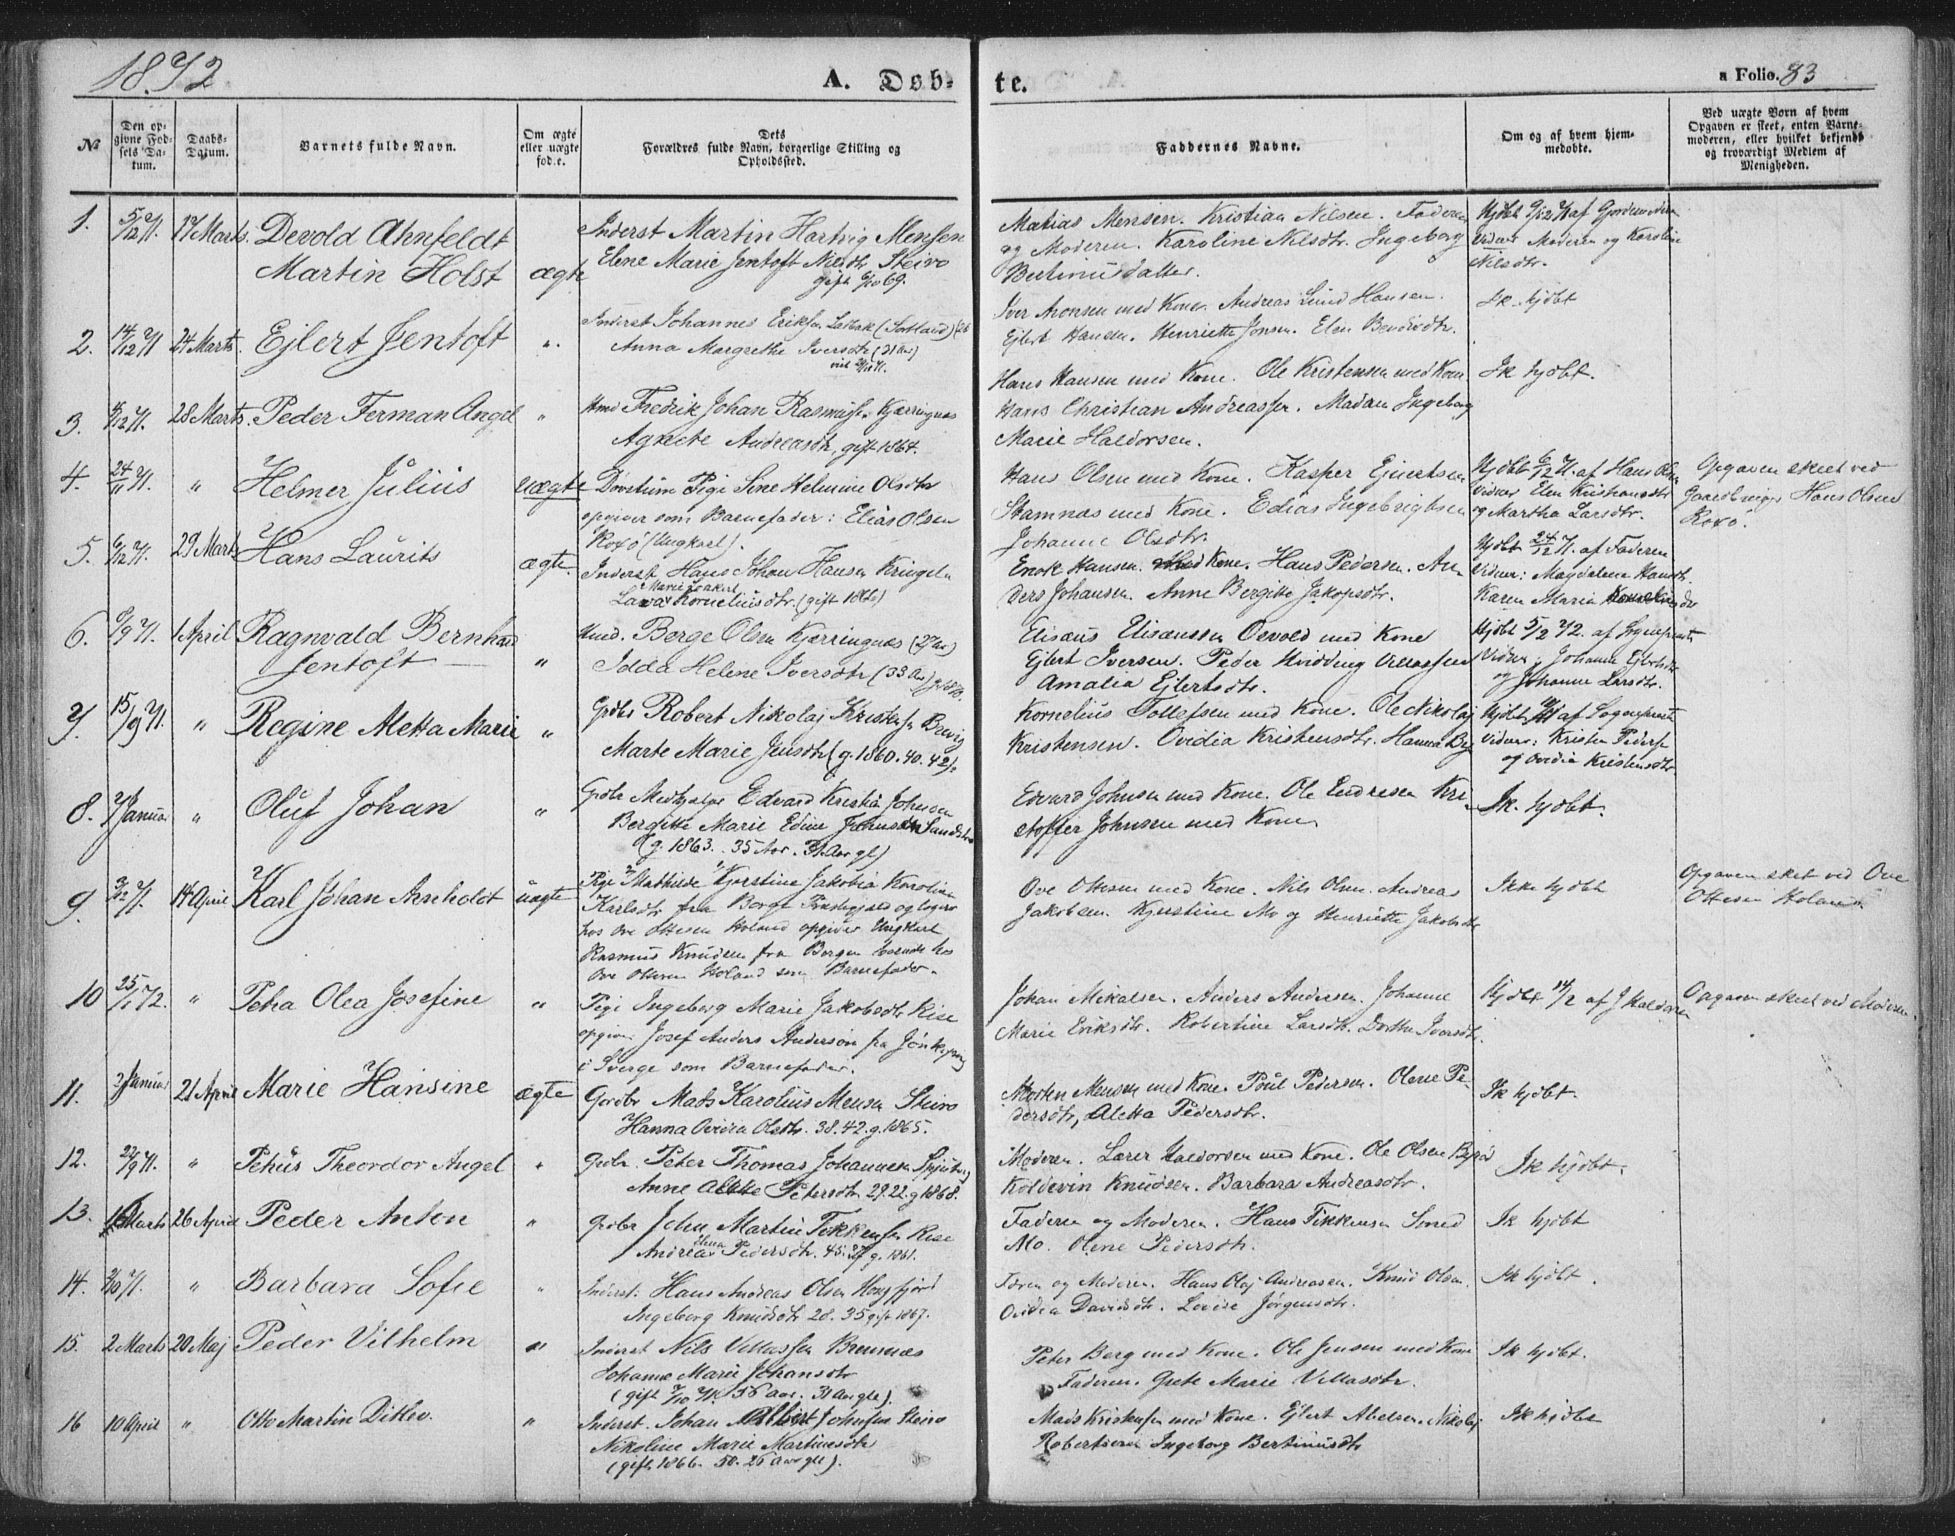 1872
A. Døb-
te.
a Folio. 83
№
Den op-
givne Fød-
sels Da-
tum.
Daabs-
Datum.
Barnets fulde Navn.
Om ægte
eller uægte
fød.e.
Dets
Forældres fulde Navn, borgerlige Stilling og
Opholdssted.
Faddernes Navne.
Om og af hvem hjem-
medøbte.
Ved uægte Børn af hvem
Opgaven er skeet, enten Barne-
moderen, eller hvilket bekjendt
og troværdigt Medlem af
Menigheden.
1.
5/12 71.
17 Marts.
Devold Ahnfeldt
Martin Holst
ægte
Inderst Martin Hartvig Mensen
Elene Marie Jentoft Nilsdtr Steiro
gift 69.
Matias Mensen. Kristian Nilsen. Faderen
og Moderen. Karoline Nilsdtr. Ingeborg
Bertinusdatter.
Vidner Moderen og Karoline
Nilsdtr.
2.
14/12 71
24 Marts.
Ejlert Jentoft
".
Inderst Johannes Eriksen (Sortland)
Anna Margrethe Iversdtr (31 Aar)
Iver Aronsen med Kone. Andreas Lund Hansen.
Ejlert Hansen. Henriette Jonsen. Elen
Ik. hjdbt
3.
28 Marts.
Peder Ferman Angel
"
Hmd Fredrik Johan Rasmuss. Kjærringnæs
Agnete Andreasdtr, gift 1864.
Hans Hansen med Kone. Ole Kristensen med Kone
Hans Christian Andreassen. Madam Ingeborg
Marie Haldorsen.
Ik hjdbt.
4.
24/11 71.
"
Helmer Julius
uægte
Pige Sine Helmine Olsdtr
opgiver som Barnefader: Elias Olsen
Roxø (Ungkarl).
Hans Olsen med Kone. Kasper Ejvertsen
Stamnæs med Kone. Edias Ingebrigtsen
Johanne Olsdtr.
Hjdbt 6/12 71. af Hans Olsen
Vidner Elen Kristiansdtr
og Martha Larsdtr.
Opgaven skeet ved
Gaardbruger Hans Olsen
Roxø.
5.
6/12 71.
29 Marts
Hans Laurits
ægte.
Inderst Hans Johan Hansen Kringeln
Korneliusdtr. (gift 1866)
Enok Hansen. Med Kone. Hans Pedersen. An-
ders Johansen. Anne Bergitte Jakopsdtr.
Hjdbt 24/12 71. af Faderen
Vidner: Magdalena Hansdtr.
Karen Maria
6.
9/9 71.
1 April
Ragnvald Bernhard
Jentoft
"
Hmd. Berge Olsen Kjærringnæs (27 Aar)
Idda Helene Iversdtr (33 Aar)
Elisæus Elisæussen Osvold med Kone
Ejlert Iversen. Peder Hvidding Villassen
Amalia Ejlertsdtr.
Hjdbt 5/2 72. af Sognepresten
Vidner: Johanne Ejlertsdtr
og Johanne Larsdtr.
7.
15/9 71.
"
Regine Aletta Marie
"
Grdbr Robert Nikolaj Kristensen
Marte Marie Jensdtr (g. 1860. 40. 42).
Kornelius Tollefsen med Kone. Ole Nikolaj
Kristensen. Ovidia Kristensdtr. Hanna
Hjdbt af Sognepresten
Vidner: Kristen Pedersen
og Ovidia Kristensdtr.
8.
7 Januar
"
Oluf Johan
"
Grdbr Edvard Kristian Johnsen
Bergitte Marie Edine
(g. 1863. 35 Aar. 31 Aar gl)
Edvard Johnsen med Kone. Ole Endresen Kri-
stoffer Johnsen med Kone
Ik. hjdbt.
9.
14 April
Karl Johan Arnholdt
uægte
Pige Mathilde Kjerstine Jakobia Karoline
Karlsdtr fra Borge Præstegjæld og logerer
hos Ove Ottesen Holand opgiver Ungkarl
Rasmus Knudsen fra Bergen boende hos
Ove Ottesen Holand som Barnefader.
Ove Ottesen med Kone. Nils Olsen. Andreas
Jakobsen. Kjerstine Mo og Henriette Jakobsdtr
Ikke hjdbt
Opgaven skeet ved Ove
Ottesen Holand.
10
25/1 72.
"
Petra Olea Josefine
"
Pige Ingeborg Marie Jakobsdtr Rise
opgiver Josef Anders Anderson fra Jönköping
i Sverge som Barnefader.
Johan Mikalsen. Anders Andersen. Johanne
Marie Eriksdtr. Robertine Larsdtr. Dorthea Iversdtr.
Hjdbt 14/2 af J Haldorsen
Opgaven skeet ved Moderen.
11.
2 Januar
21 April
Marie Hansine
ægte
Gardbr Mads Karolius Mensen Steiro
Hanna Ovidia Olsdtr. 38. 42. g. 1865.
Morten Mensen med Kone. Poul Pedersen. Olene Pe-
dersdtr, Aletta Pedersdtr.
Ik hjdbt.
12.
22/9 71.
"
Petrus Theordor Angel
"
Grdbr. Peter Thomas Johannesen
Anne Petersdtr. 29. 22. g 1868.
Moderen. Lærer Haldorsen med Kone. Ole Olsen
Koldevin Knudsen. Barbara Andreasdtr.
Ik hjdbt.
13.
Marts
26 April
Peder Anton
"
Grdbr John Martin Fikkensen Rise
Andrea Elena Pedersdtr. 45. 37 g. 1861.
Faderen og Moderen. Hans Fikkensen Smed
Mo. Olene Pedersdtr.
Ik hjdbt
14.
"
Barbara Sofie
"
Inderst. Hans Andreas Olsen
Ingeborg Knudsdtr 28. 35 gift 1867.
Faren og Moderen. Hans Olaj Andreasen. Knud Olsen.
Ovidia Davidsdtr. Lovise Jörgensdtr.
Ik hjdbt.
15.
2 Marts
20 Maj
Peder Vilhelm
"
Inderst Nils Villassen Brennæs
Johanne Marie Johansdtr
(gift 7/10 71. 56 aar. 31 aar gl.).
Peter Berg med Kone. Ole Jensen med Kone
Faderen. Grete Marie Villasdtr.
Ik hjdbt.
16
10 April
"
Otto Martin Ditlev.
"
Inderst. Johan Albert Johnsen Steiro
Nikoline Marie Martinesdtr
(gift 1866. 50. 26 Aar gl.).
Mads Kristensen med Kone. Ejlert Abelsen. Nikolaj
Robertsen Ingeborg Bertinusdtr
Ik hjdbt